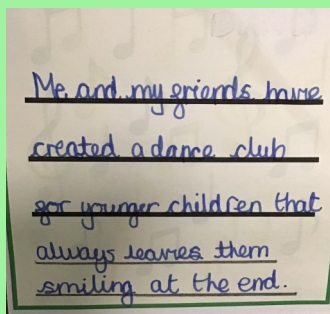 Me and my friends have
created a dance club
for younger children that
always leaves them
smiling at the end.